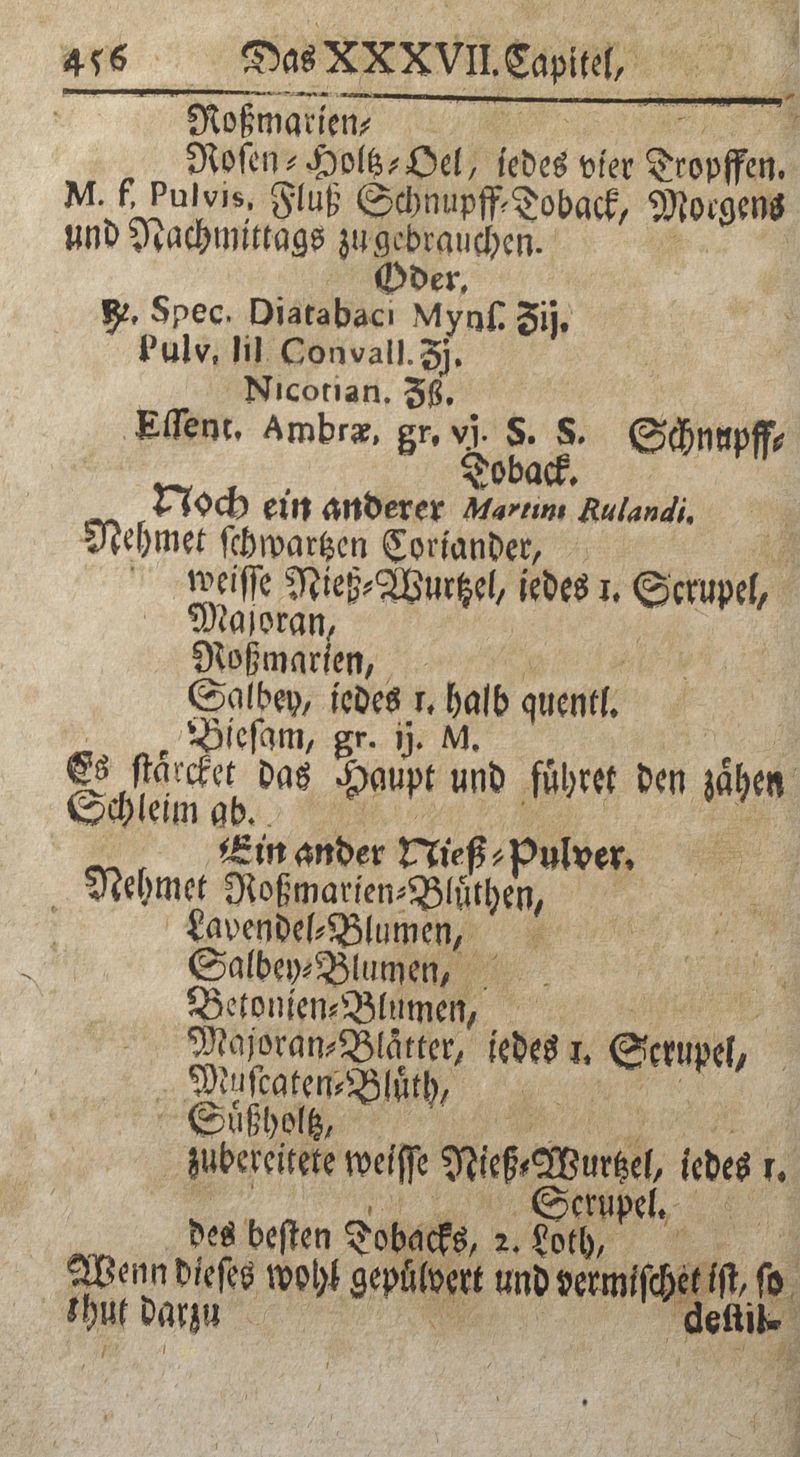 456 Das XXXVII. Capitel,
Roßmarien⸗
Rosen⸗Holtz⸗Oel, iedes vier Tropffen.
M. f. Pulvis, Fluß Schnupff⸗Toback, Morgens
und Nachmittags zu gebrauchen.
Oder,
℞. Spec. Diatabaci Mynſ. ʒij.
Pulv. lil Convall. ʒj.
Nicotian. ʒß.
Eſſent. Ambræ. gr. vj. S. S. Schnupff⸗
Toback.
Noch ein anderer Martini Rulandi.
Nehmet schwartzen Coriander,
weisse Nieß⸗Wurtzel, iedes 1. Scrupel,
Majoran,
Roßmarien,
Salbey, iedes 1. halb quentl.
Biesam, gr. ij. M.
Es stärcket das Haupt und führet den zähen
Schleim ab.
Ein ander Nieß⸗Pulver.
Nehmet Roßmarien⸗Blüthen,
Lavendel⸗Blumen,
Salbey⸗Blumen,
Betonien⸗Blumen,
Majoran⸗Blätter, iedes 1. Scrupel,
Muscaten⸗Blüth,
Süßholtz,
zubereitete weisse Nieß⸗Wurtzel, iedes 1.
Scrupel.
des besten Tobacks, 2. Loth,
Wenn dieses wohl gepülvert und vermischet ist, so
thut darzu destil-